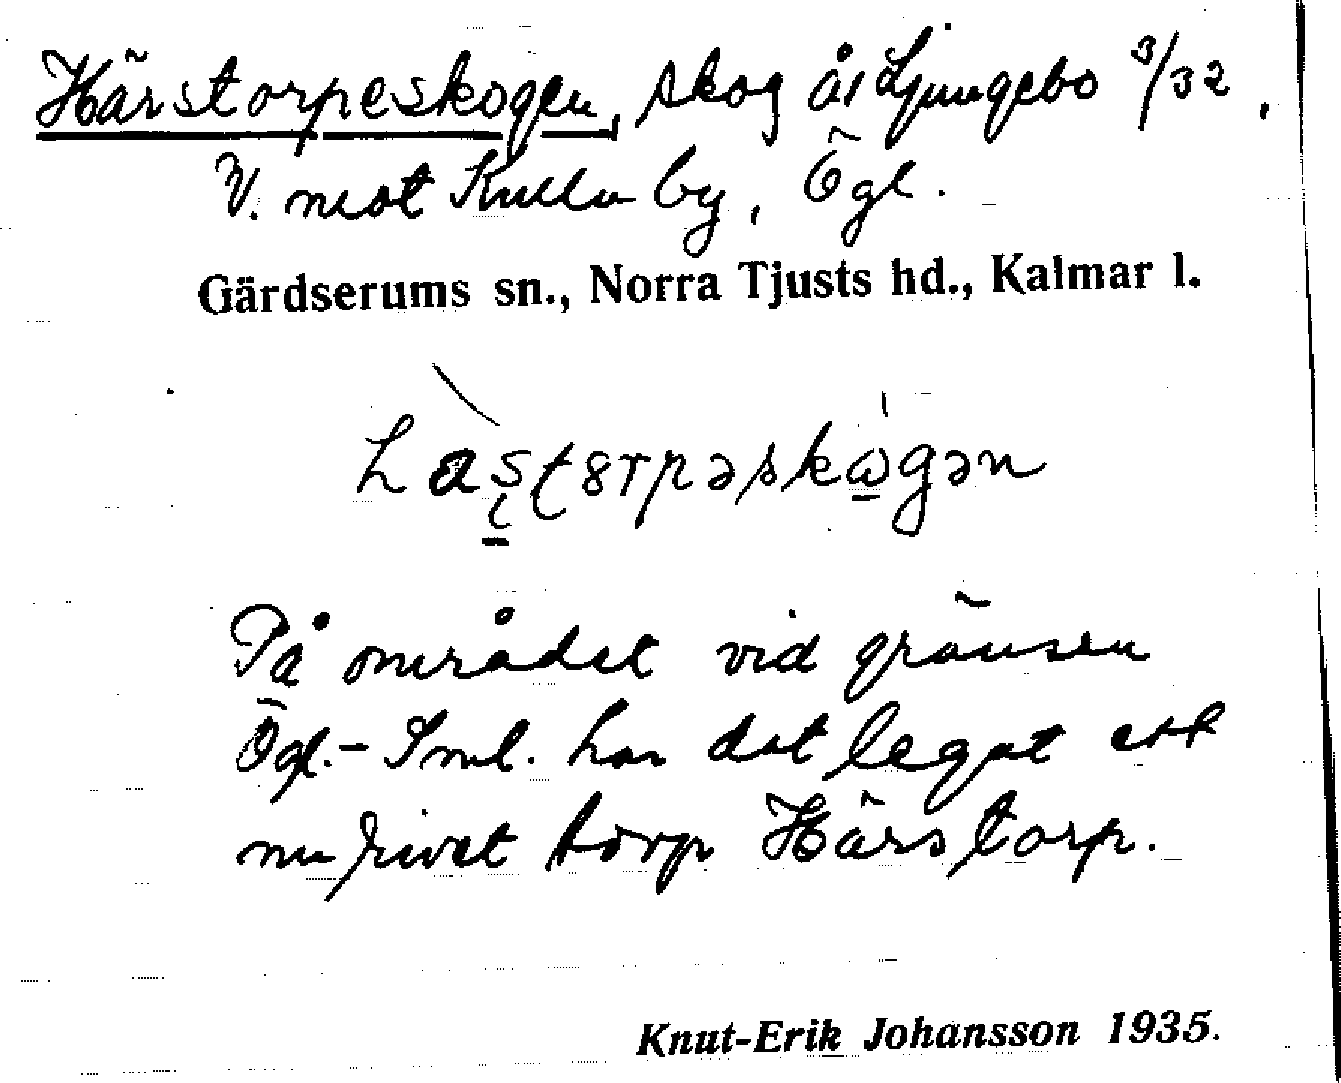 Härstorpeskogen, skog åt Ljungebo 3/32,
V. mot Kulla by, Ögl.
Gärdserums sn., Norra Tjusts hd., Kalmar l.
På området vid gränsen
Ögl.- Sml. har det legat ett
nu rivet torp Härstorp.
Knut-Erik Johansson 1935.